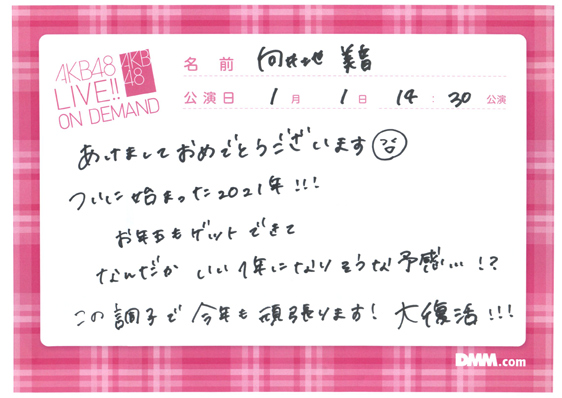 AKB48
LIVE!!
ON DEMAND
AKB
48
名前 向井地 美音
公演日 1月 1日 14:30 公演
あけましておめでとうございます
ついに始まった2021年!!!
お年玉もゲットできて
なんだか いい1年になりそうな予感…!?
この調子で 今年も頑張ります! 大復活!!!
DMM.com